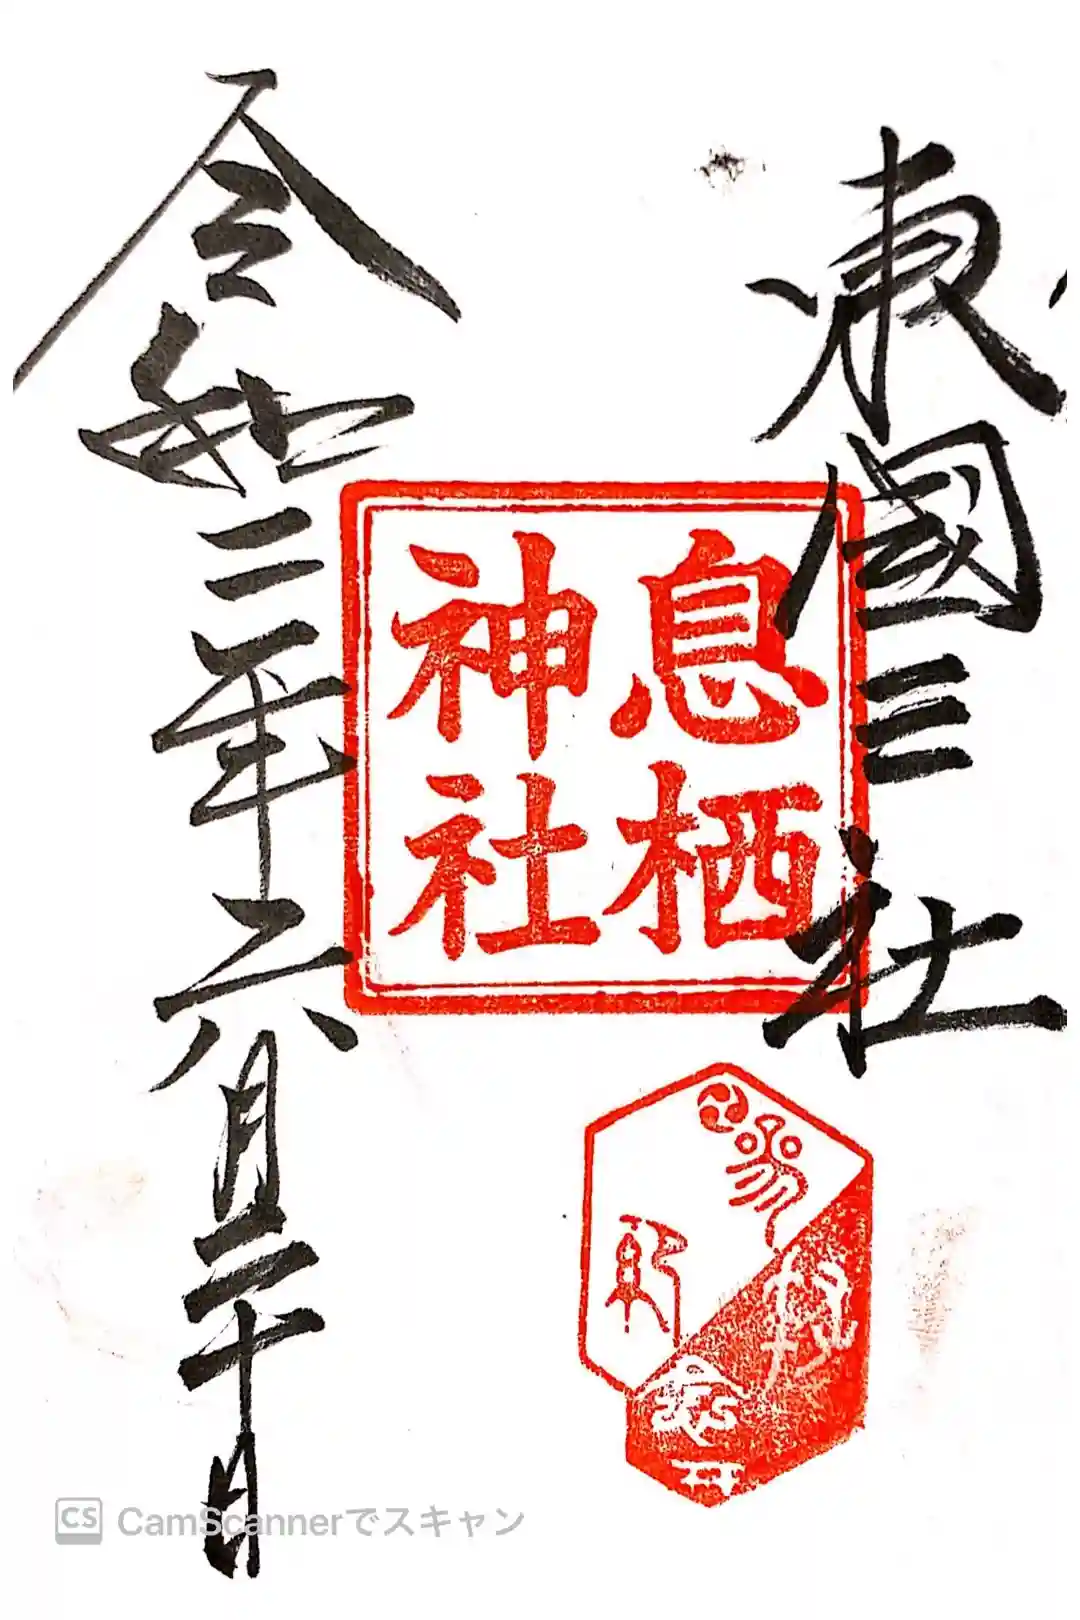 東國三社
息栖
神社
令和二年六月二十日
CS CamScannerでスキャン